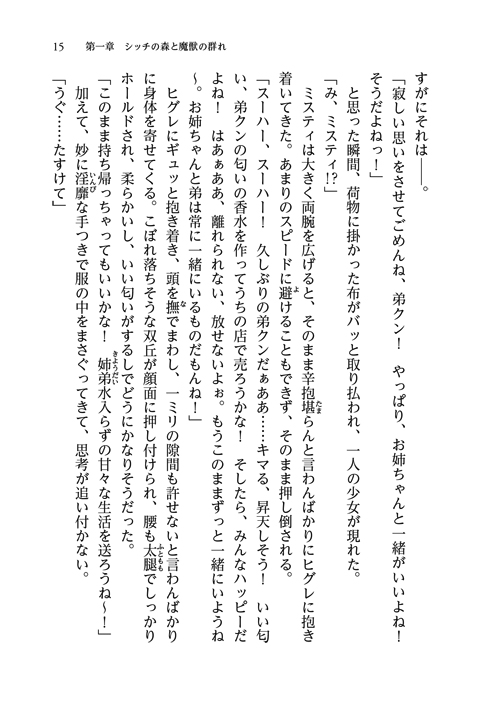 15　第一章　シッチの森と魔獣の群れ
すがにそれは――。
「寂しい思いをさせてごめんね、弟クン！　やっぱり、お姉ちゃんと一緒がいいよね！
そうだよねっ！」
　と思った瞬間、荷物に掛かった布がバッと取り払われ、一人の少女が現れた。
「み、ミスティ!?」
　ミスティは大きく両腕を広げると、そのまま辛抱堪らんと言わんばかりにヒグレに抱き
着いてきた。あまりのスピードに避けることもできず、そのまま押し倒される。
「スーハー、スーハー！　久しぶりの弟クンだぁああ……キマる、昇天しそう！　いい匂
い、弟クンの匂いの香水を作ってうちの店で売ろうかな！　そしたら、みんなハッピーだ
よね！　はあぁああ、離れられない、放せないよぉ。もうこのままずっと一緒にいようね
～。お姉ちゃんと弟は常に一緒にいるものだもんね！」
　ヒグレにギュッと抱き着き、頭を撫でまわし、一ミリの隙間も許せないと言わんばかり
に身体を寄せてくる。こぼれ落ちそうな双丘が顔面に押し付けられ、腰も太腿でしっかり
ホールドされ、柔らかいし、いい匂いがするしでどうにかなりそうだった。
「このまま持ち帰っちゃってもいいかな！　姉弟水入らずの甘々な生活を送ろうね～！」
　加えて、妙に淫靡な手つきで服の中をまさぐってきて、思考が追い付かない。
「うぐ……たすけて」